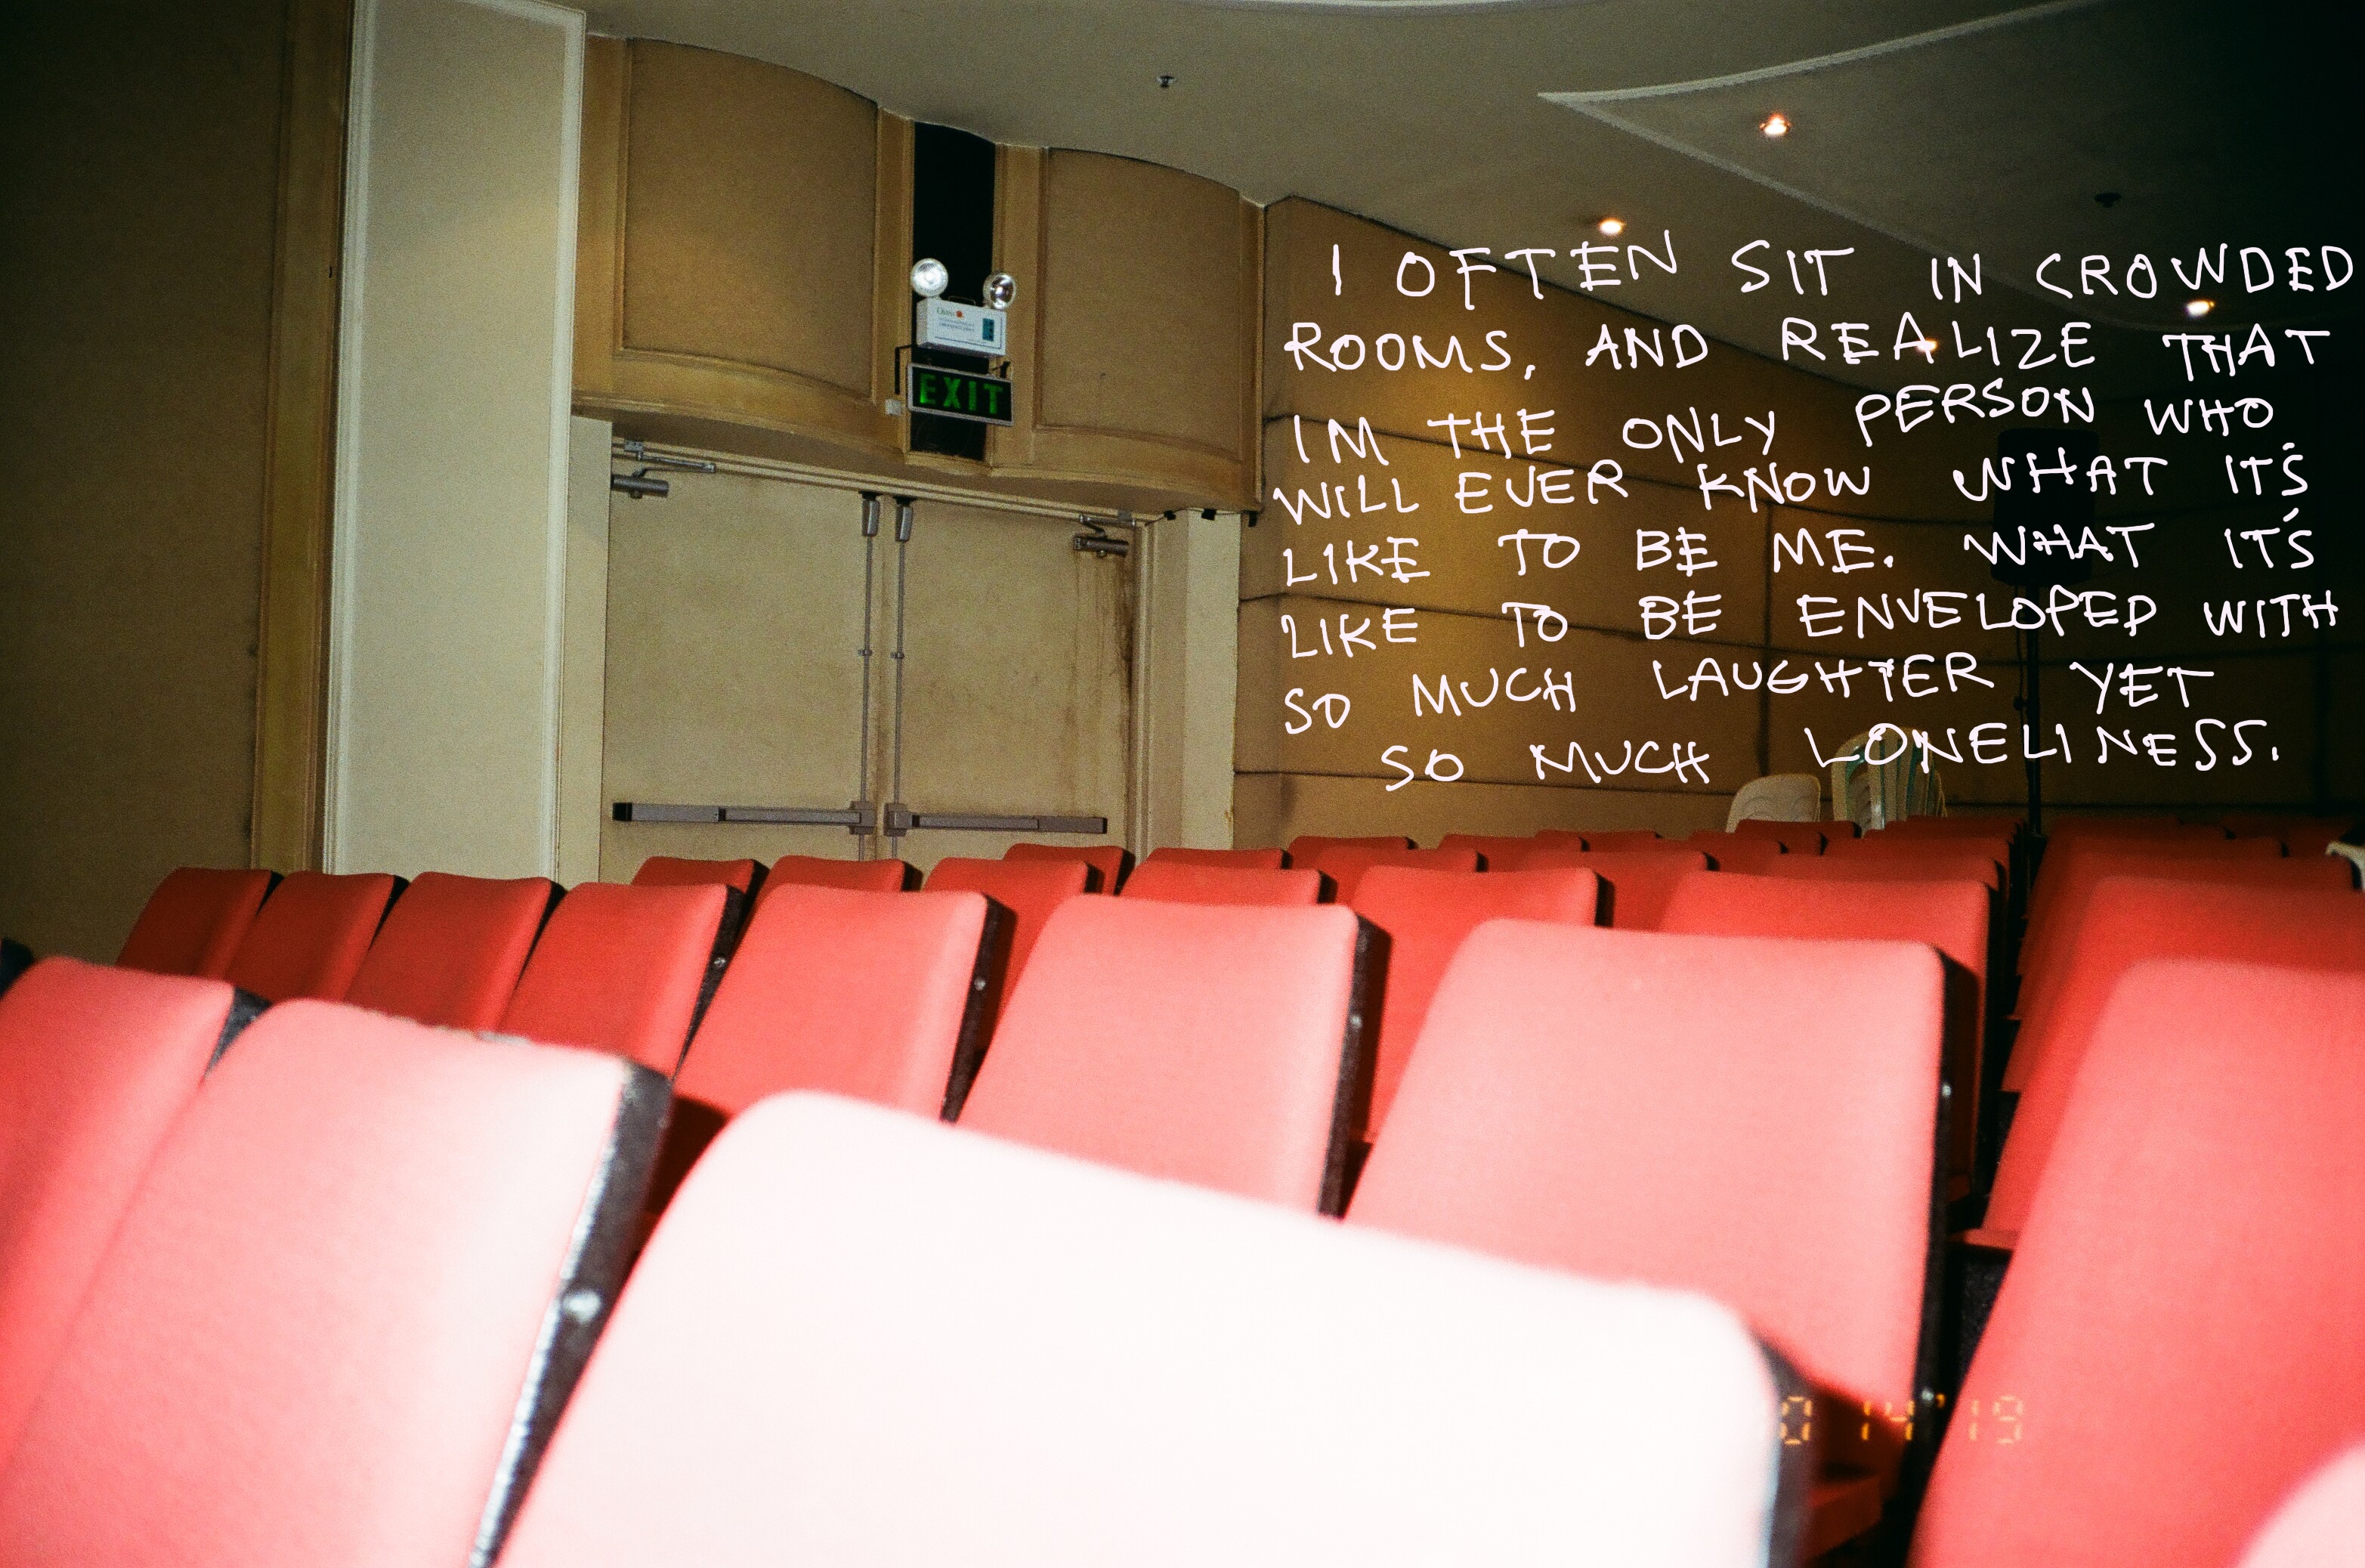 EXIT
I OFTEN SIT IN CROWDED
ROOMS, AND REALIZE THAT
IM THE ONLY PERSON WHO
WILL EVER KNOW WHAT IT'S
LIKE TO BE ME. WHAT IT'S
LIKE TO BE ENVELOPED WITH
SO MUCH LAUGHTER YET
SO MUCH LONELINESS.
0 14 '19